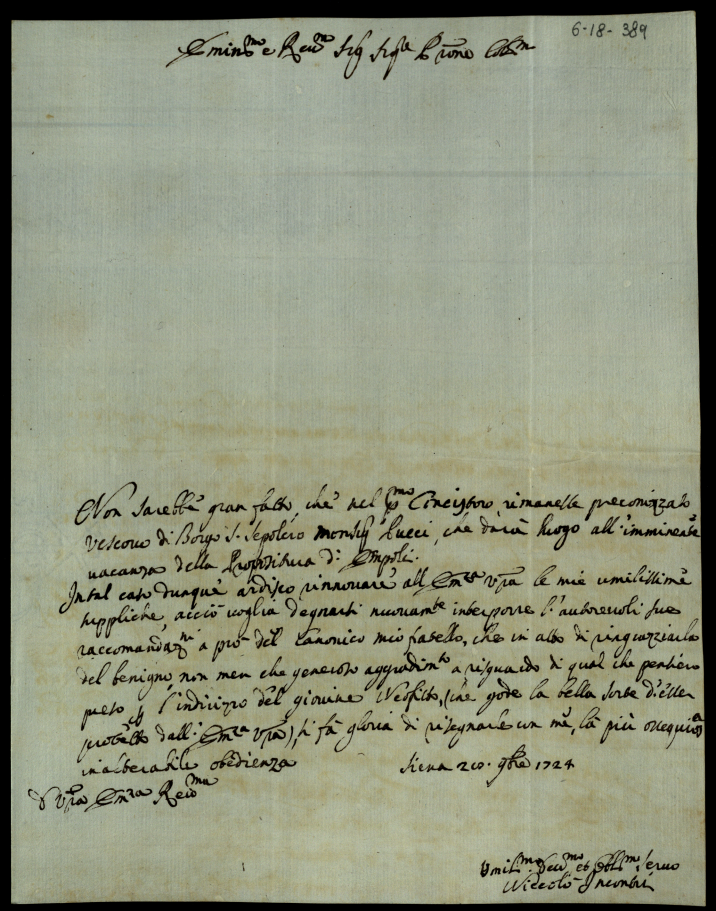 6-18-389
Emin.mo e Rev.mo Sig Sig.re P.rone Col.mo
Non sarebbe gran fatto, che nel p.mo Concistoro, rimanesse preconizzato
Vescovo di Borgo S. Sepolcro Monsig.r Lucci, che darà luogo all'imminente
vacanza della Propositura d'Empoli.
In tal caso dunque ardisco rinnovare all'Em.za V.ra le mie umilissime
suppliche, acciò voglia degnarsi nuovam.te interporre l'autorevoli sue
raccomandaz.ni a prò del Canonico mio fratello, che in atto di ringraziarla
del benigno non men che generoso aggradim.to a risguardo di qual che pensiero
preso p l'indirizzo del giovine Neofito, (che gode la bella sorte d'esser
protetto dall'Em.za V.ra), si fà gloria di risegnarle con me, la più ossequiosa
inalterabile obedienza Siena 20. 9bre 1724
D V.ra Em.za Rev.ma
Umil.mo Dev.mo et Obbl.mo servo
Niccolò Incontri